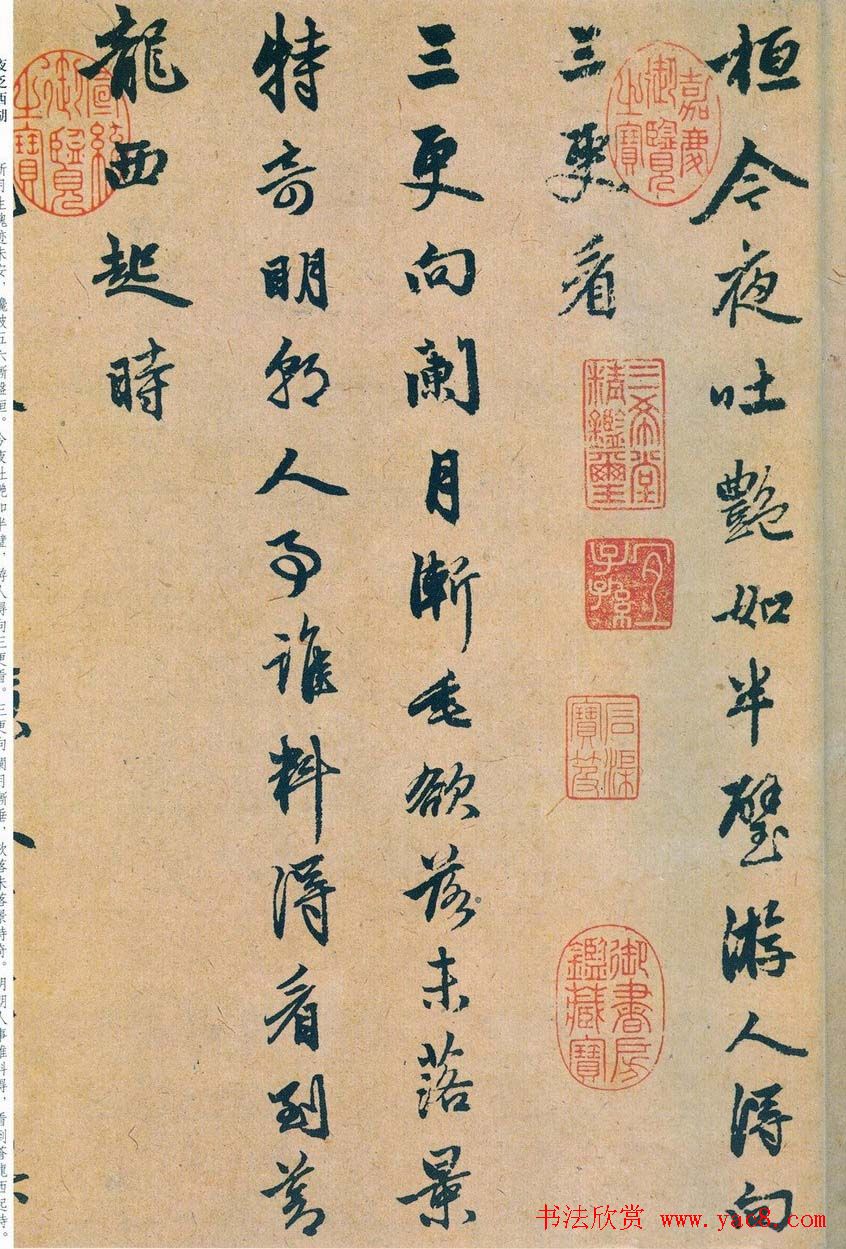 桓今夜吐艷如半璧游人得向
嘉慶御覽之寶
三更看
三希堂精鑑璽
宜子孫
石渠寶笈
御書房鑑藏寶
三更向闌月漸垂欲落未落景
特奇明朝人事誰料得看到蒼
龍西起時
宣統御覽之寶
夜泛西湖 新月生魄迹未安，纔破五六漸盤桓。今夜吐艷如半璧，游人得向三更看。三更向闌月漸垂，欲落未落景特奇。明朝人事誰料得，看到蒼龍西起時。
书法欣赏 www.yac8.com